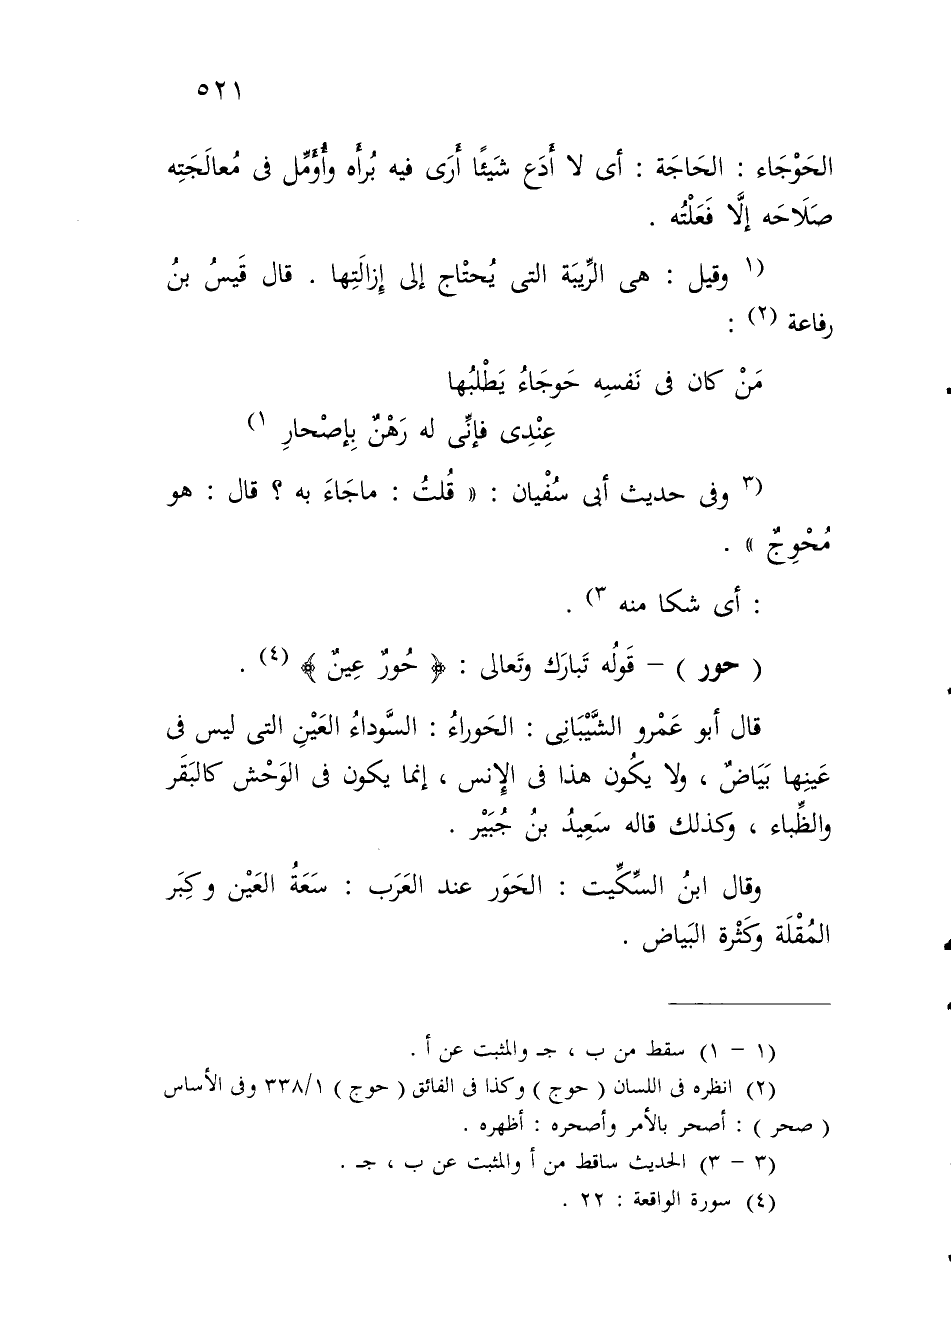 ٥٢١
الحَوْجَاء : الحَاجَة : أى لا أَدَع شَيئًا أَرَى فيه بُرأَه وأُؤَمِّل فى مُعالَجَتِه
صَلَاحَه إلَّا فَعَلْتُه .
(١ وقيل : هى الرِّيبَة التى يُحتْاج إلى إزالَتِها . قال قَيسُ بنُ
رفاعة (٢) :
مَنْ كان فى نَفسِه حَوجَاءُ يَطْلُبُها
عِنْدِى فإنِّى له رَهْنٌ بِإصْحارِ ١)
(٣ وفى حديث أبى سُفْيان : « قُلتُ : ماجَاءَ به ؟ قال : هو
مُحْوِجٌ » .
: أى شكا منه ٣) .
( حور ) – قَولُه تَبارَك وتَعالى : ﴿ حُورٌ عِينٌ ﴾ (٤) .
قال أبو عَمْرو الشَّيْبَانِى : الحَوراءُ : السَّوداءُ العَيْنِ التى ليس فى
عَينِها بَيَاضٌ ، ولا يكُون هذا فى الإنس ، إنما يكون فى الوَحْش كالبَقَر
والظِّباء ، وكذلك قاله سَعِيدُ بنُ جُبَيْر .
وقال ابنُ السِّكِّيت : الحَوَر عند العَرَب : سَعَةُ العَيْن وكِبَر
المُقْلَة وكَثْرة البَياض .
(١ – ١) سقط من ب ، جـ والمثبت عن أ .
(٢) انظره فى اللسان ( حوج ) وكذا فى الفائق ( حوج ) ٣٣٨/١ وفى الأساس
( صحر ) : أصحر بالأمر وأصحره : أظهره .
(٣ – ٣) الحديث ساقط من أ والمثبت عن ب ، جـ .
(٤) سورة الواقعة : ٢٢ .